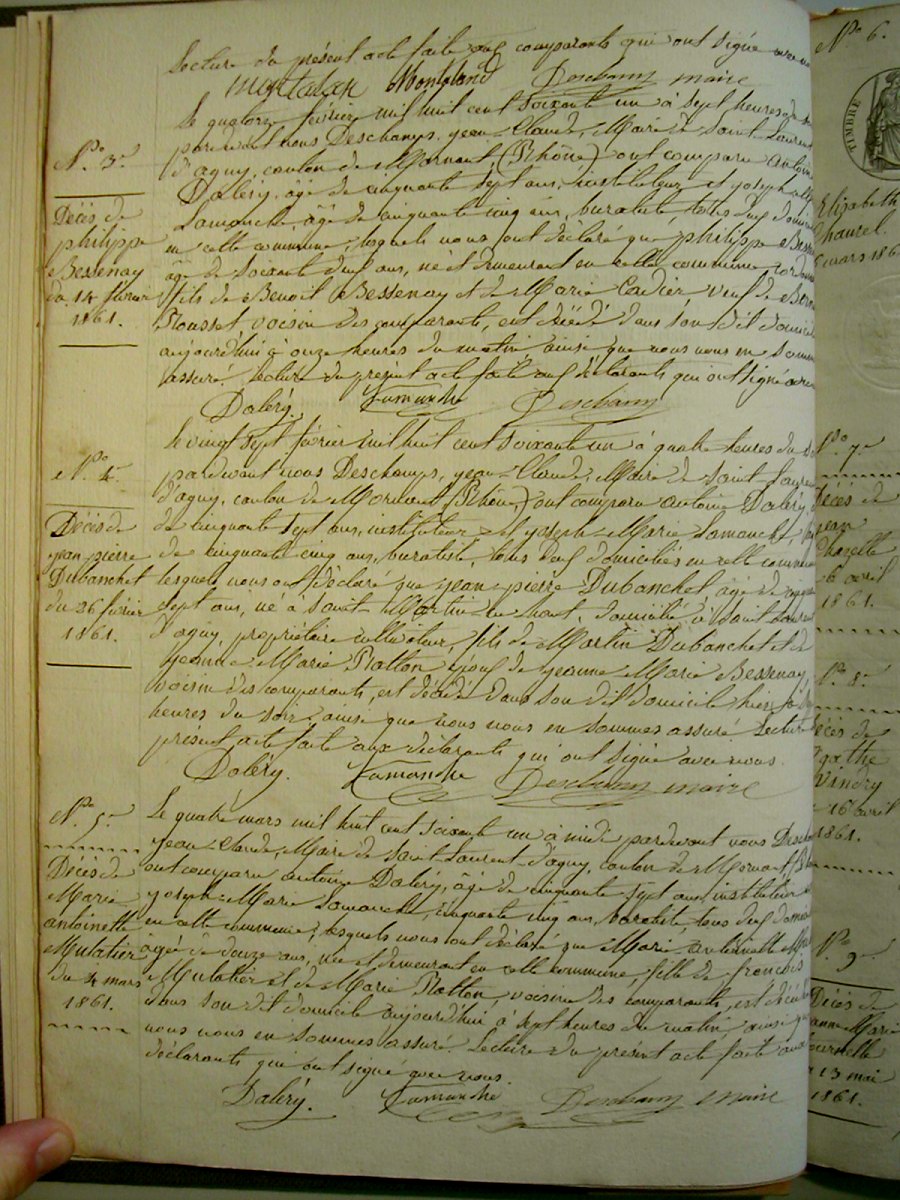 Lecture du présent acte faite aux comparants qui ont signé avec nous
Montaland Deschamps maire
N.o 3.
Décès de
philippe
Bessenay
du 14 février
1861.
Le quatorze février mil huit cent soixante un à sept heures du
pardevant nous Deschamps, jean-Claude, Maire de Saint Laurent
d'agny, canton de Mornant (Rhône) ont comparu antoine
Daléry, âgé de cinquante sept ans, instituteur et joseph
Lamanche, âgé de cinquante cinq ans, buraliste, tous deux
en cette commune, lesquels nous ont déclaré que philippe Bessenay
âgé de soixante deux ans, né et demeurant en cette commune
fils de Benoit Bessenay et de Marie Cadier veuf de
Rousset, voisin des comparants, est décédé dans son dit domicile
aujourd'hui à onze heures du matin ainsi que nous nous en sommes
assuré. Lecture du présent acte faite aux déclarants qui ont signé avec
Daléry. Lamanche Deschamps
N.o 4.
Décès de
jean pierre
Dubanchet
du 26 février
1861.
Le vingt sept février mil huit cent soixante un à quatre heures du
pardevant nous Deschamps, jean-Claude, Maire de Saint Laurent
d'agny, canton de Mornant (Rhône) ont comparu antoine Daléry,
de cinquante sept ans, instituteur et joseph-Marie Lamanche,
de cinquante cinq ans, buraliste, tous deux domiciliés en cette commune
lesquels nous ont déclaré que jean-pierre Dubanchet, âgé de
sept ans, né à Saint Martin en haut, domicilié à Saint Laurent
d'agny, propriétaire cultivateur, fils de Martin Dubanchet et de
jeanne Marie Ratton, époux de jeanne Marie Bessenay,
voisin des comparants, est décédé dans son dit domicile hier à
heures du soir, ainsi que nous nous en sommes assuré. Lecture
présent acte faite aux déclarants qui ont signé avec nous.
Daléry. Lamanche Deschamps maire
N.o 5.
Décès de
Marie
antoinette
Mulatier
du 4 mars
1861.
Le quatre mars mil huit cent soixante un à midi pardevant nous Deschamps
jean-Claude, Maire de Saint Laurent d'agny, canton de Mornant
ont comparu antoine Daléry, âgé de cinquante sept ans instituteur
joseph-Marie Lamanche, cinquante cinq ans, buraliste, tous deux
en cette commune, lesquels nous ont déclaré que Marie antoinette
âgée de douze ans, née et demeurant en cette commune, fille de françois
Mulatier et de Marie Ratton, voisine des comparants, est décédée
dans son dit domicile aujourd'hui à sept heures du matin ainsi que
nous nous en sommes assuré. Lecture du présent acte faite aux
déclarants qui ont signé avec nous.
Daléry. Lamanche Deschamps maire
N.o 6.
TIMBRE
Elizabeth
mars 186
N.o 7.
Décès de
jean
Chazelle
6 avril
1861.
N.o 8.
Décès de
agathe
Vindry
16 avril
1861.
N.o 9.
Décès de
Marie
13 mai
1861.